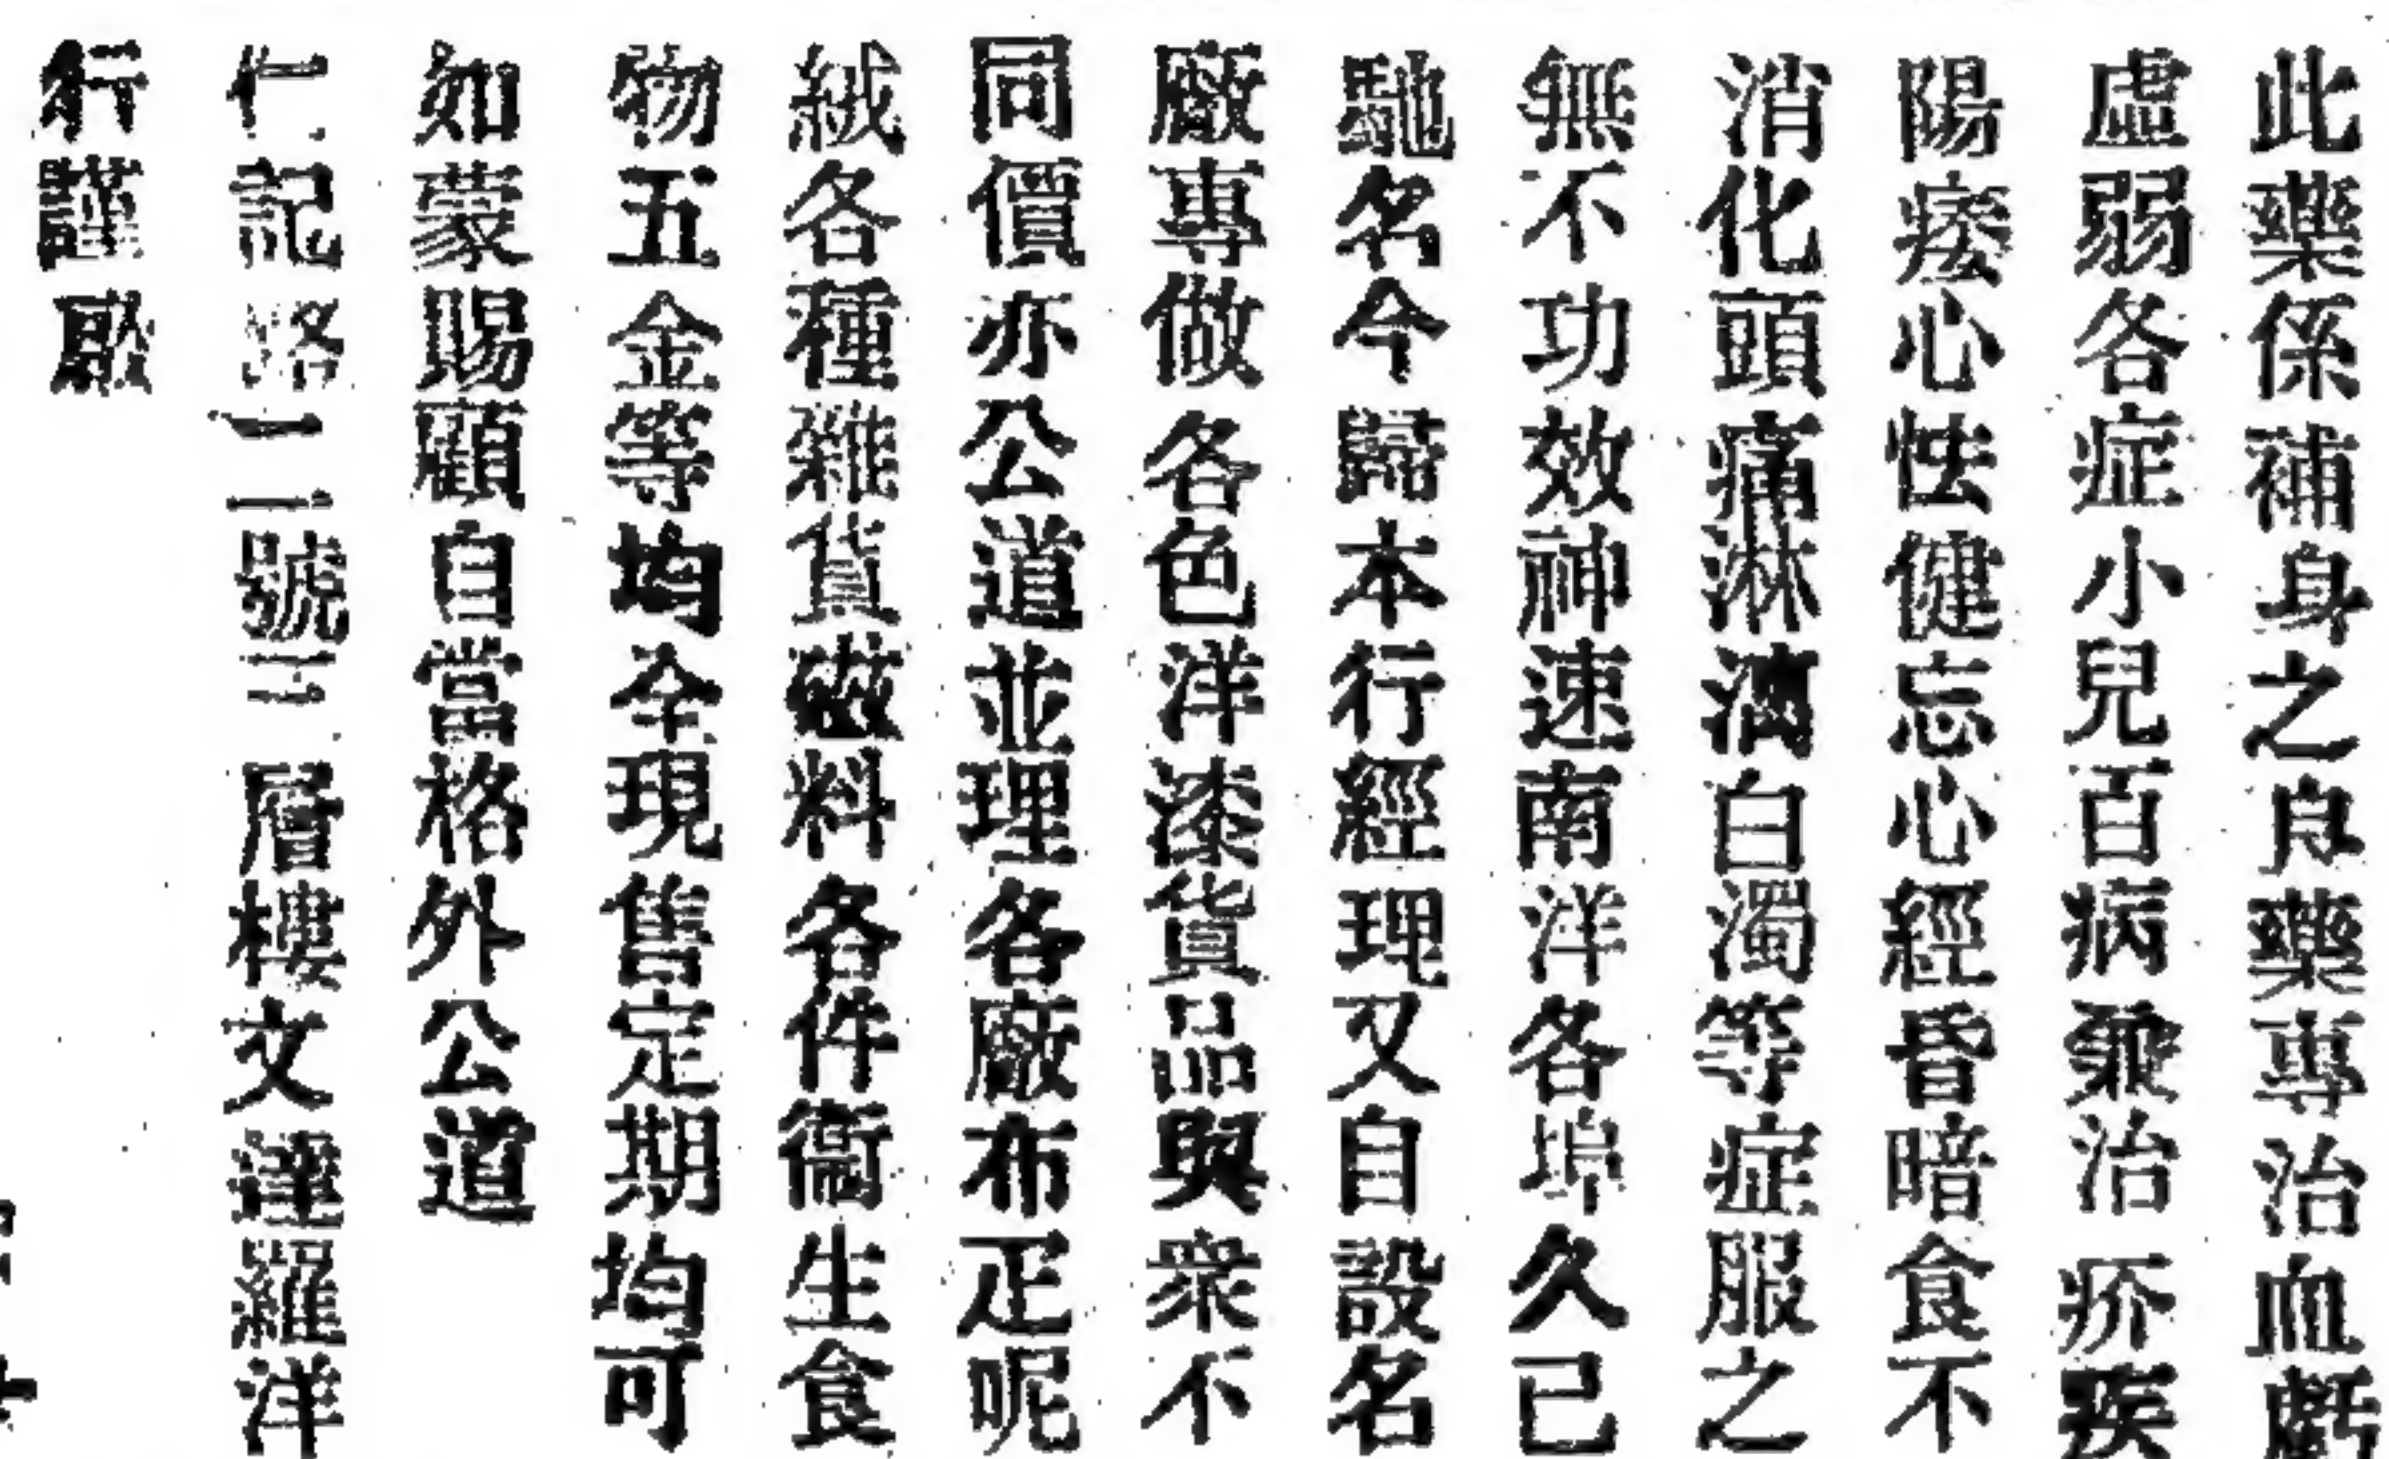 此藥係補身之良藥專治血虧
虛弱各症小兒百病兼治疥疾
陽痿心怯健忘心經昏暗食不
消化頭痛淋漓白濁等症服之
無不功效神速南洋各埠久已
馳名今歸本行經理又自設名
廠專做各色洋漆貨品與衆不
同價亦公道並理各廠布疋呢
絨各種雜貨磁料各件衞生食
物五金等均全現售定期均可
如蒙賜顧自當格外公道
仁記路二號三層樓文達羅洋
行謹啟